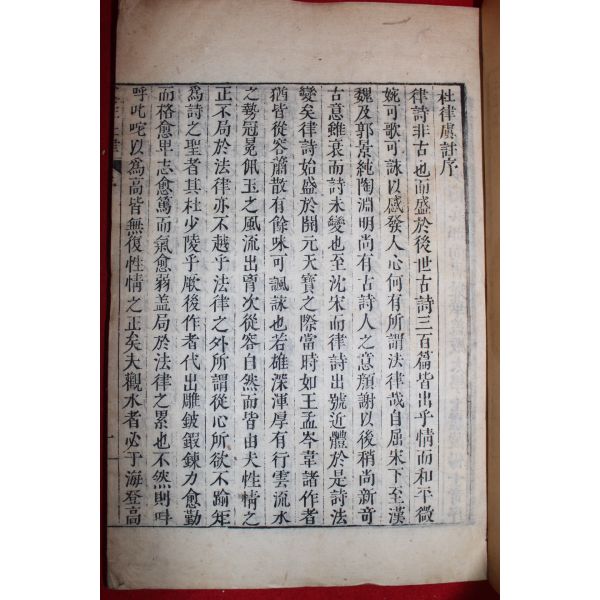 杜律虞註序
律詩非古也而盛於後世古詩三百篇皆出乎情而和平微
婉可歌可詠以感發人心何有所謂法律哉自屈宋下至漢
魏及郭景純陶淵明尚有古詩人之意顏謝以後稍尚新奇
古意雖衰而詩未變也至沈宋而律詩出號近體於是詩法
變矣律詩始盛於開元天寶之際當時如王孟岑韋諸作者
猶皆從容蕭散有餘味可諷詠也若雄深渾厚有行雲流水
之勢冠冕佩玉之風流出胷次從容自然而皆由夫性情之
正不局於法律亦不越乎法律之外所謂從心所欲不踰矩
為詩之聖者其杜少陵乎厥後作者代出雕鎪鍛鍊力愈勤
而格愈卑志愈篤而氣愈弱盖局於法律之累也不然則呌
呼叱咤以為高皆無復性情之正矣夫觀水者必于海登高